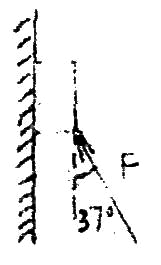 F
37°